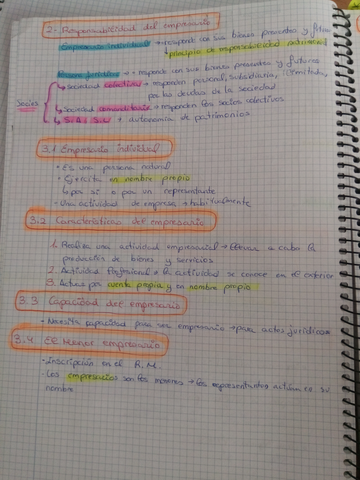 2- Responsabilidad del empresario
Empresario individual → responde con sus bienes presentes y futuros
↳ principio de responsabilidad patrimonial
Persona jurídica → responde con sus bienes presentes y futuros
Sociedad colectiva → responden personal, subsidiaria, ilimitada,
por las deudas de la sociedad
Socios
Sociedad comanditaria → responden los socios colectivos
S.A. S.L → autonomía de patrimonios
3.1 Empresario individual
• Es una persona natural
• Ejercita en nombre propio
↳ por sí o por un representante
• Una actividad de empresa → habitualmente
3.2 Características del empresario
1. Realiza una actividad empresarial → llevar a cabo la
producción de bienes y servicios
2. Actividad Profesional → la actividad se conoce en el exterior
3. Actua por cuenta propia y en nombre propio
3.3 Capacidad del empresario
• Necesita capacidad para ser empresario → para actos jurídicos
3.4 El Menor empresario
• Inscripción en el R.M.
• Los empresarios son los menores → los representantes actúan en su
nombre